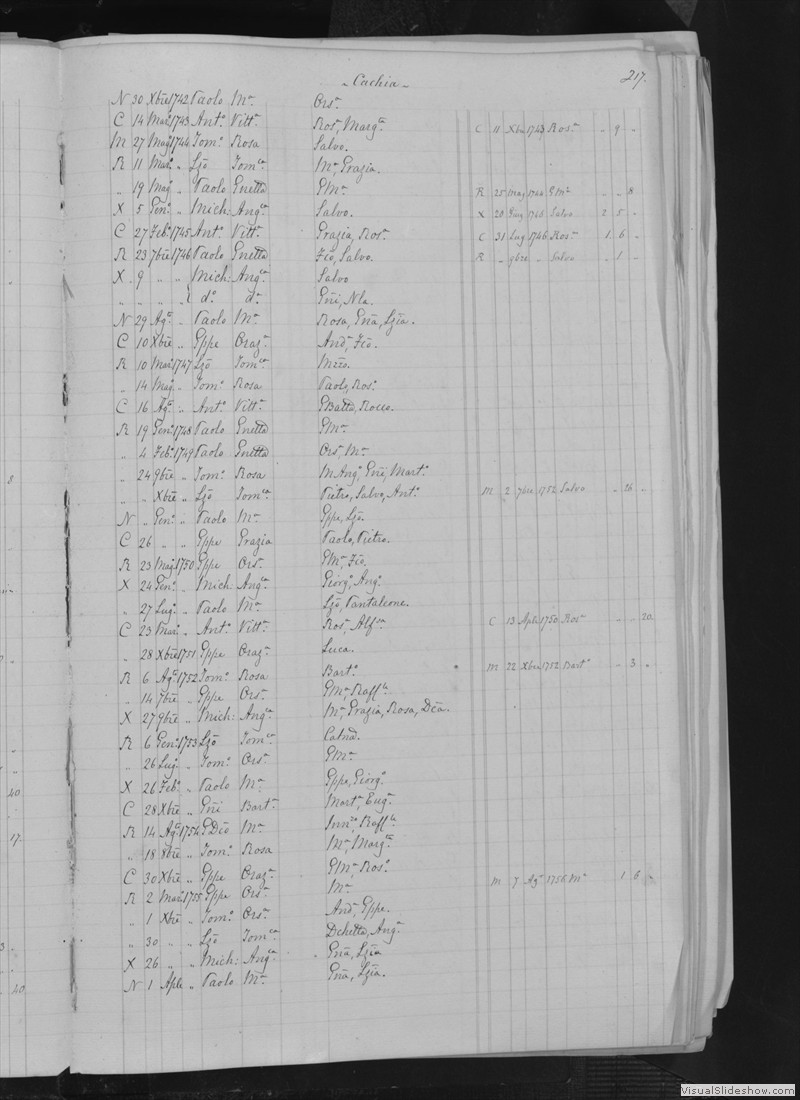 Cachia
217.
N 30 Xbre 1742 Paolo Ma Orsa
C 14 Mar. 1743 Anto Vitta Rosa, Marga C 11 Xbre 1743 Rosa „ 9 „
M 27 Mago 1744 Tomo Rosa Salvo.
R 11 Mar. „ Lzo Tomca Ma, Grazia.
„ 19 Mago „ Paolo Gnetta GMa R 25 Mag 1744 GMa „ „ 8
X 5 Geno „ Mich: Angca Salvo. X 20 1746 Salvo 2 5 „
C 27 Febo 1745 Anto Vitta Grazia, Rosa C 31 Lug 1746 Rosa 1 6 „
R 23 7bre 1746 Paolo Gnetta Fco, Salvo. R „ 9bre „ Salvo „ 1 „
X 9 „ „ Mich: Angca Salvo
„ „ „ „ do da Gni, Nla.
N 29 Ago „ Paolo Ma Rosa, Gna, Lzia.
C 10 Xbre „ Gppe Oraza Anda, Fco.
R 10 Mar. 1747 Lzo Tomca Mzio.
„ 14 Mag. „ Tomo Rosa Paolo, Rosa.
C 16 Ago „ Anto Vitta GBatta, Rocco.
R 19 Geno 1748 Paolo Gnetta GMa
„ 4 Febo 1749 Paolo Gnetta Orsa, Ma
„ 24 9bre „ Tomo Rosa MAnga, Gni, Marta.
„ „ Xbre „ Lzo Tomca Pietro, Salvo, Anto. M 2 7bre 1752 Salvo „ 26 „
N „ Geno „ Paolo Ma Gppe, Lzo.
C 26 „ „ Gppe Grazia Paolo, Pietro.
R 23 Mago 1750 Gppe Orsa GMa, Fco.
X 24 Geno „ Mich: Angca Giorgo, Ango.
„ 27 Lugo „ Paolo Ma Lzo, Pantaleone.
C 23 Mar. „ Anto Vitta Rosa, Alfsa C 13 Aple 1750 Rosa „ „ 20
„ 28 Xbre 1751 Gppe Oraza Luca.
R 6 Ago 1752 Tomo Rosa Barto M 22 Xbre 1752 Barto „ 3 „
„ 14 7bre „ Gppe Orsa GMa, Raffle
X 27 9bre „ Mich: Angca Ma, Grazia, Rosa, Dca.
R 6 Geno 1753 Lzo Tomca Catna.
„ 26 Lug. „ Tomo Orsa GMa
X 26 Febo „ Paolo Ma Gppe, Giorgo
C 28 Xbre „ Gni Barta Marta, Euga.
R 14 Ago 1754 GDco Ma Innzo, Raffle
„ 18 8bre „ Tomo Rosa Ma, Margta
C 30 Xbre „ Gppe Oraza GMa Rosa
R 2 Mar. 1755 Gppe Orsa Ma M 7 Ago 1756 Ma 1 6 „
„ 1 Xbre „ Tomo Orsa Anda, Gppe.
„ 30 „ „ Lzo Tomca Dchetta, Anga.
X 26 „ „ Mich: Angca Gna, Lzia
N 1 Aple „ Paolo Ma Gna, Lzia.
8
40
17.
3
40
VisualSlideshow.com